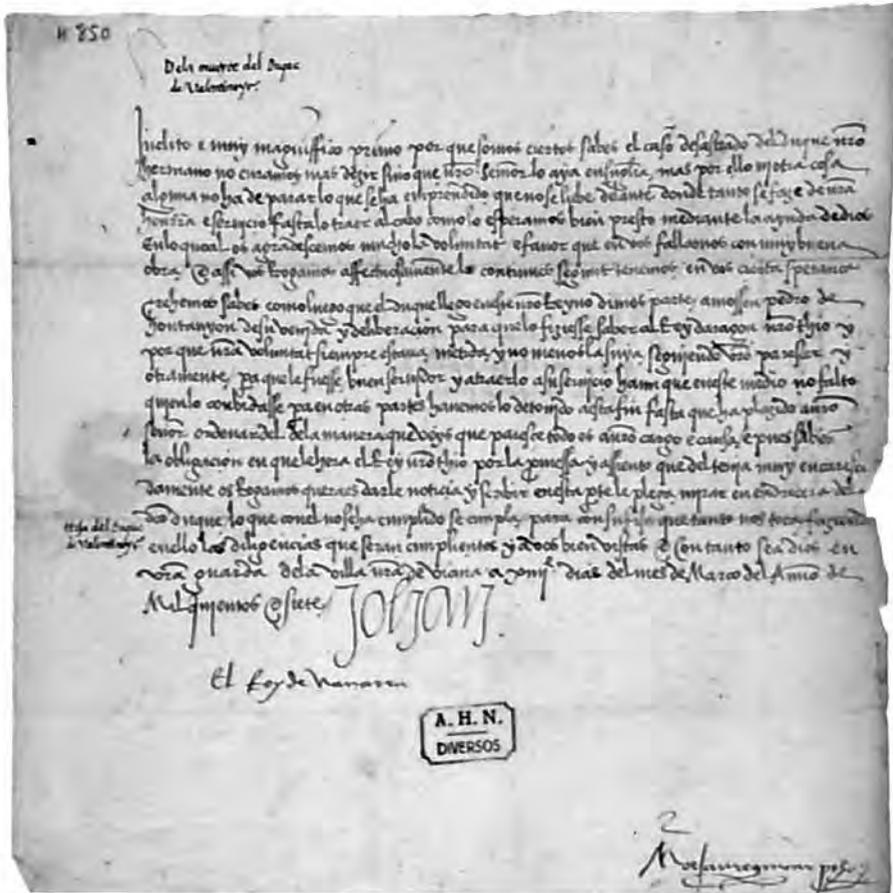 # 850
Dela muerte del Duque
de Valentinoys
Inclito e muy magniffico primo por que somos ciertos sabes el caso desastrado del Duque nro
hermano no curamos mas dezir sino que nro Senor lo aya en su gloria, mas por ello ni otra cosa
alguna no ha de parar lo que se ha emprendido que no se lieve delante donde tanto se faze de nra
honrra e servicio fasta lo traer al cabo como lo esperamos bien presto mediante la ayuda de dios
En lo qual os agradescemos mucho la voluntat e favor que en vos fallamos con muy buena
obra, E assi vos Rogamos affectuosamente lo continues segunt tenemos en vos cierta sperança
Crehemos sabes como luego que el Duque llego en este nro Reyno dimos parte, a mossen pedro de
hontanyon de su venida y deliberacion para que lo fiziesse saber al Rey daragon nro thio y
por que nra voluntat siempre estava, metida, y no menos la suya, seguiendo vro parescer y
otramente, pa que le fuesse buen servidor y atraerlo a su servicio haun que en este medio no falto
quien lo conbidasse pa en otras partes havemos lo detenido a esta fin fasta que ha plazido a nro
senor ordenar del dela manera que veys que paresce todo es a nro cargo e causa, e pues sabes
la obligacion en que le hera el Rey nro thio por la promessa y asiento que del tenia muy encaresci
damente os Rogamos queraes darle noticia y screbir en esta pte le plega mirar en endreçera del
dicho duque lo que con el no se ha cumplido se cumpla, para con su fija que tanto nos toca faziendo
Hija del Duque
de Valentinoys
en ello las diligencias que seran cumplientes y a vos bien vistas E con tanto sea dios en
vra guarda dela villa nra de Viana a xiiii dias del mes de Março del Anno de
Mil quinientos E siete
Johan
El Rey de Navarra
A. H. N.
DIVERSOS